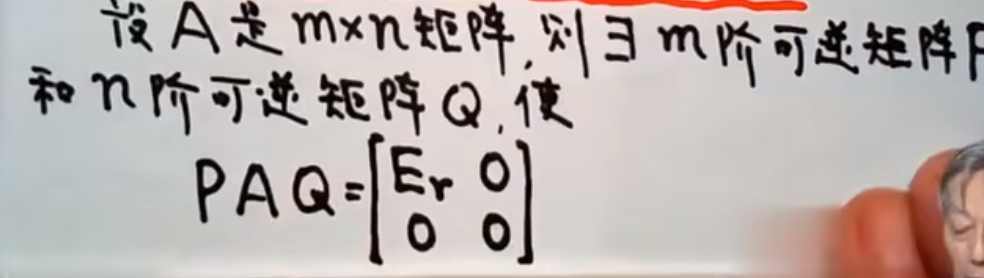 设 A 是 m×n 矩阵, 则 ∃ m 阶可逆矩阵 P
和 n 阶可逆矩阵 Q, 使
PAQ = [Er 0
0 0]